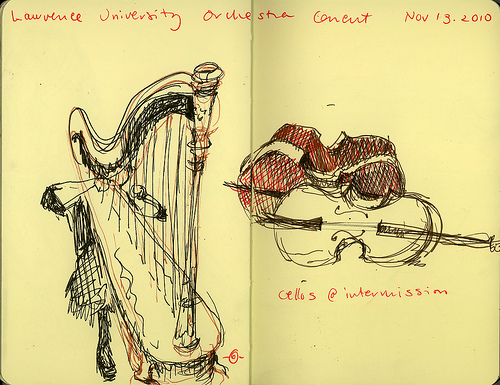 Lawrence University Orchestra Concert Nov 13. 2010
cellos @ intermission